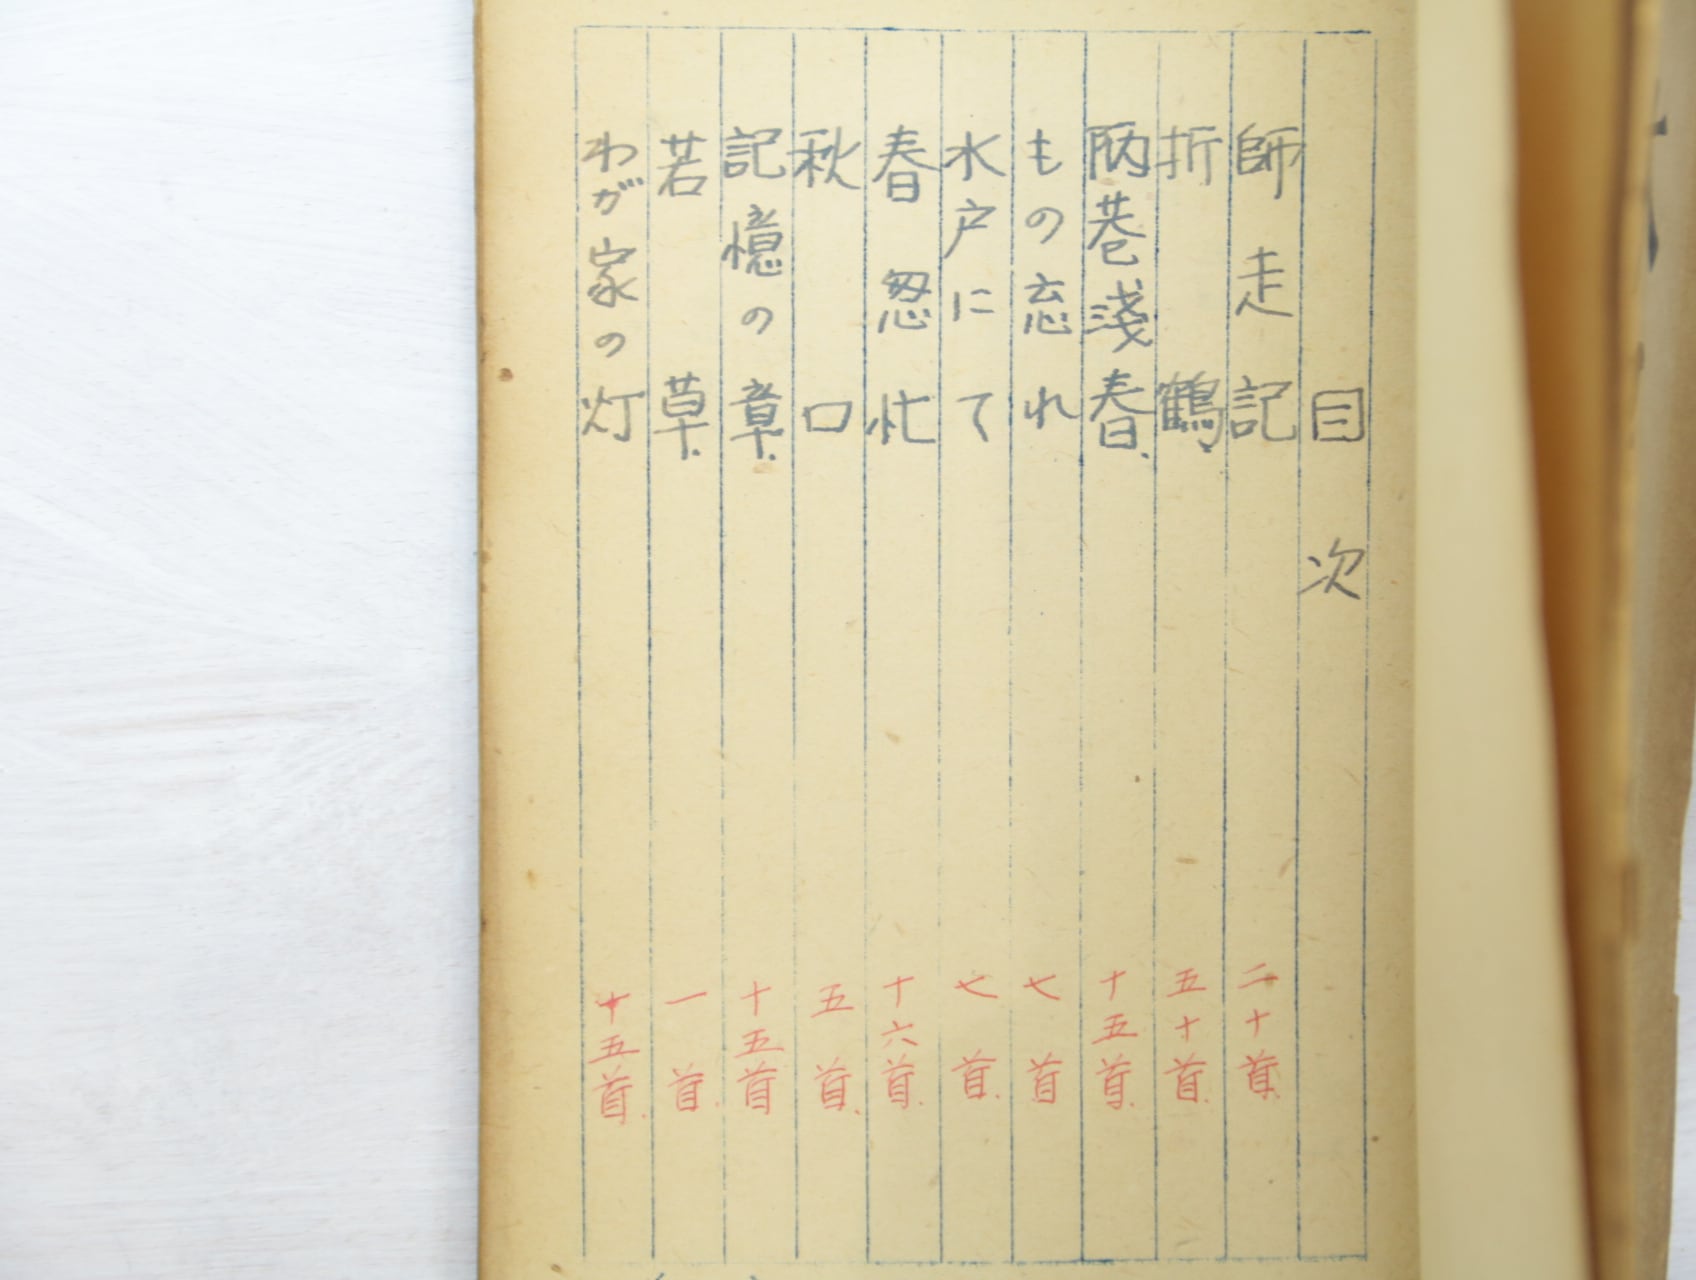 目次
師走記 二十首
折鶴 五十首
陋巷淺春 十五首
もの忘れ 七首
水戸にて 七首
春怱忙 十六首
秋口 五首
記憶の章 十五首
若草 一首
わが家の灯 十五首